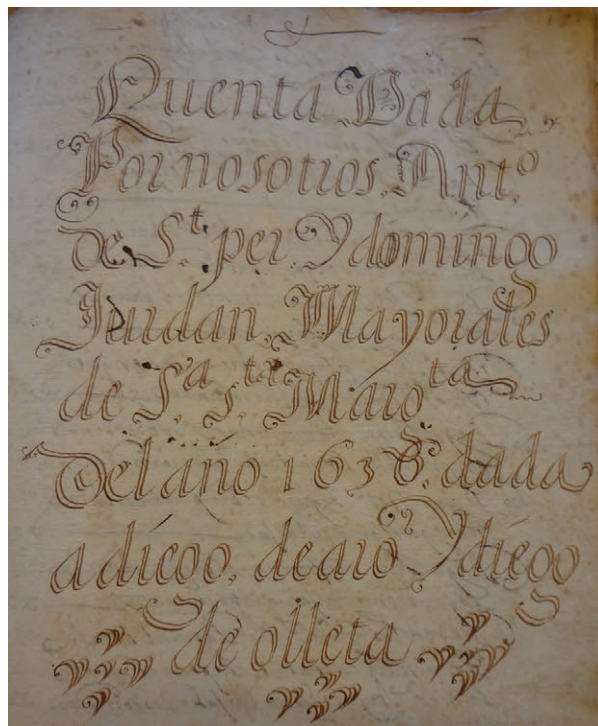 Quenta Dada
Por nosotros Antº
de S.t per. Y domingo
Jurdan. Mayorales
de S.ª S.ta Maroᵗᵃ
Del año 1638. dada
a diego. de aro Y diego
de olleta